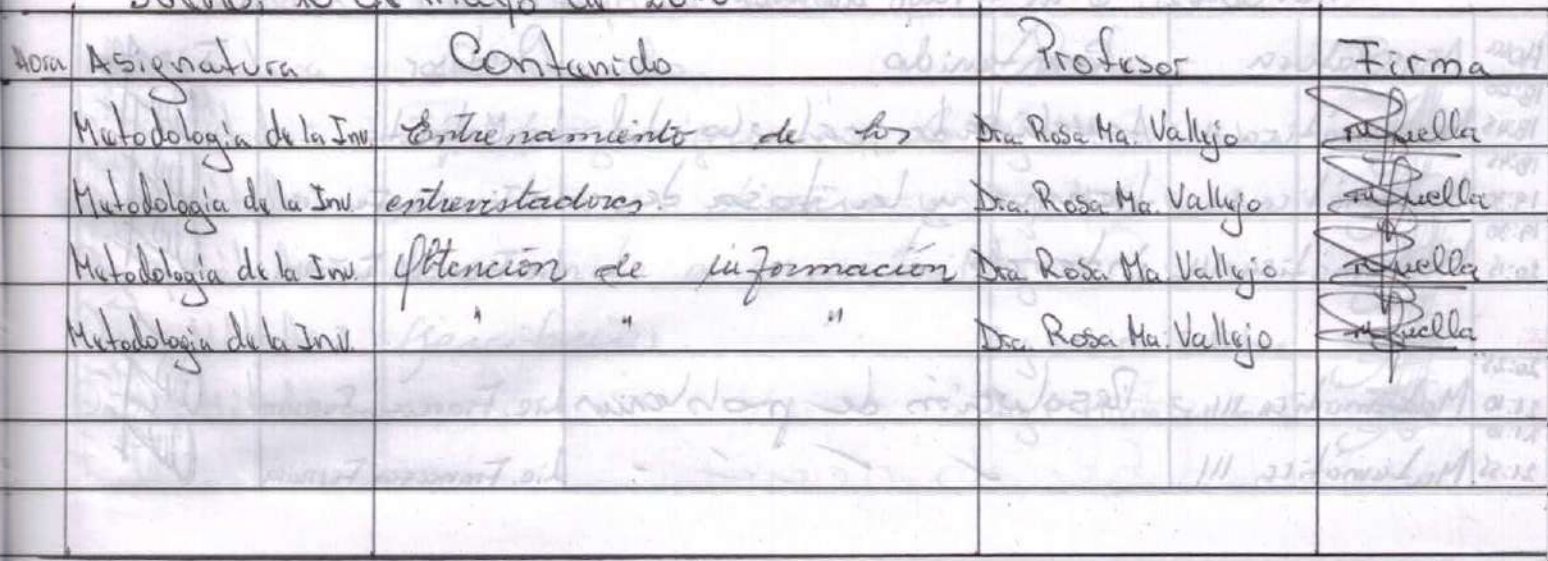 de mayo de
Hora Asignatura Contenido Profesor Firma
Metodología de la Inv. Entrenamiento de los Dra. Rosa Ma. Vallejo
Metodología de la Inv. entrevistadores. Dra. Rosa Ma. Vallejo
Metodología de la Inv. Obtención de información Dra. Rosa Ma. Vallejo
Metodología de la Inv. " " " Dra. Rosa Ma. Vallejo